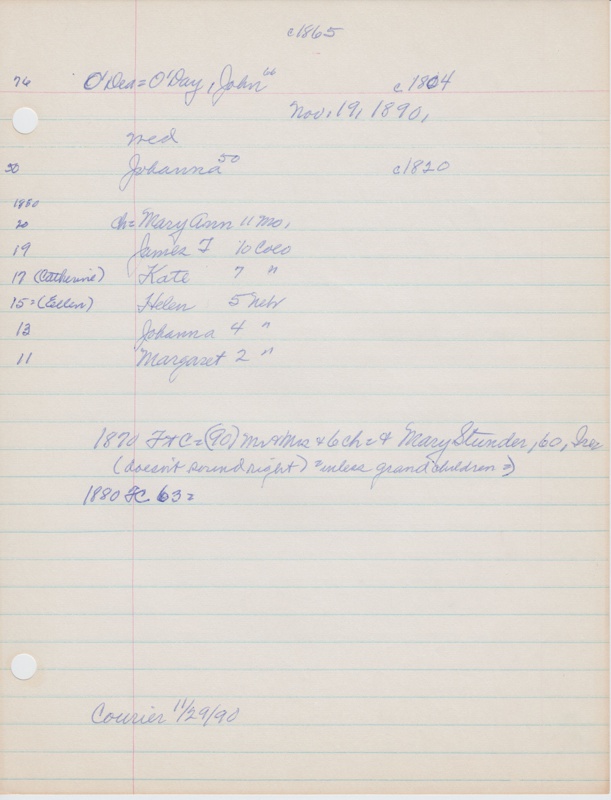 c1865
76 O'Dea = O'Day, John 66 c1804
Nov. 19, 1890,
wed
50 Johanna 50 c1820
1880
20 ch = Mary Ann 11 mo,
19 James F 10 Colo
17 (Catherine) Kate 7 "
15 = (Eellen) Helen 5 Nebr
13 Johanna 4 "
11 Margaret 2 "
1870 F+C = (90) Mr & Mrs & 6 ch = & Mary Stunder, 60, Ire
(doesn't sound right) = unless grandchildren =)
1880 FC 63 =
Courier 11/29/90